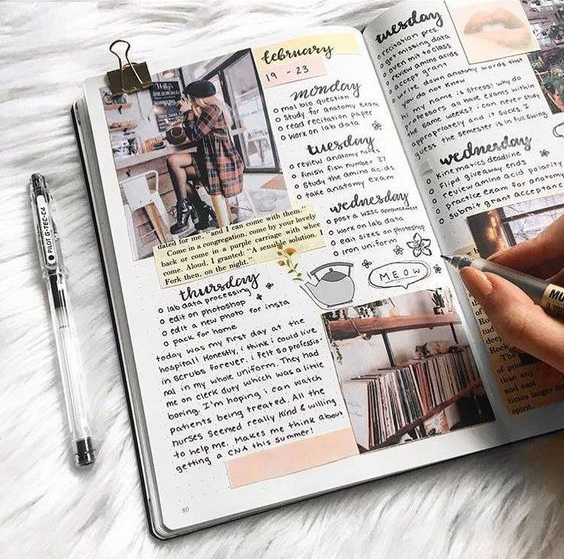 february
19 - 23
monday
o mol bio question
o study for anatomy exam
o read recitation paper
o work on lab data
tuesday
o review anatomy notes
o finish fish number 27
o study the amino acids
o take anatomy exam
wednesday
o work on lab data
o edit sizes on photoshop
o iron uniform
dated for me." and I can come with them."
Come in a congregation, come by your lovely
back or come in a purple carriage with whee
come. Aloud, I granted: "A sensible solution.
Fork then, on the night."
thursday
o lab data processing
o edit on photoshop
o edit a new photo for insta
o pack for home
MEOW
today was my first day at the
hospital! Honestly, i think i could live
in scrubs forever. i felt so professio-
nal in my whole uniform. They had
me on clerk duty which was a little
boring. I'm hoping i can watch
patients being treated. All the
nurses seemed really kind & willing
to help me. Makes me think about
getting a CNA this summer!
80
tuesday
o recitation pres.
o get missing data
o even mit to class
o review amino acids
o accept grant
o write down anatomy words that
you do not know
my name is stress! why do
professors all have exams within
the same week? i can never study
appropriately and it sucks. I
guess the semester is in full swing
wednesday
o kinematics deadline
o Flip'd giveaway ends
o review amino acid polarity
o practice exam for anatomy
o submit grant acceptance
of
than any
and east
times larg
spirit.
PILOT G-TEC-C4
MU